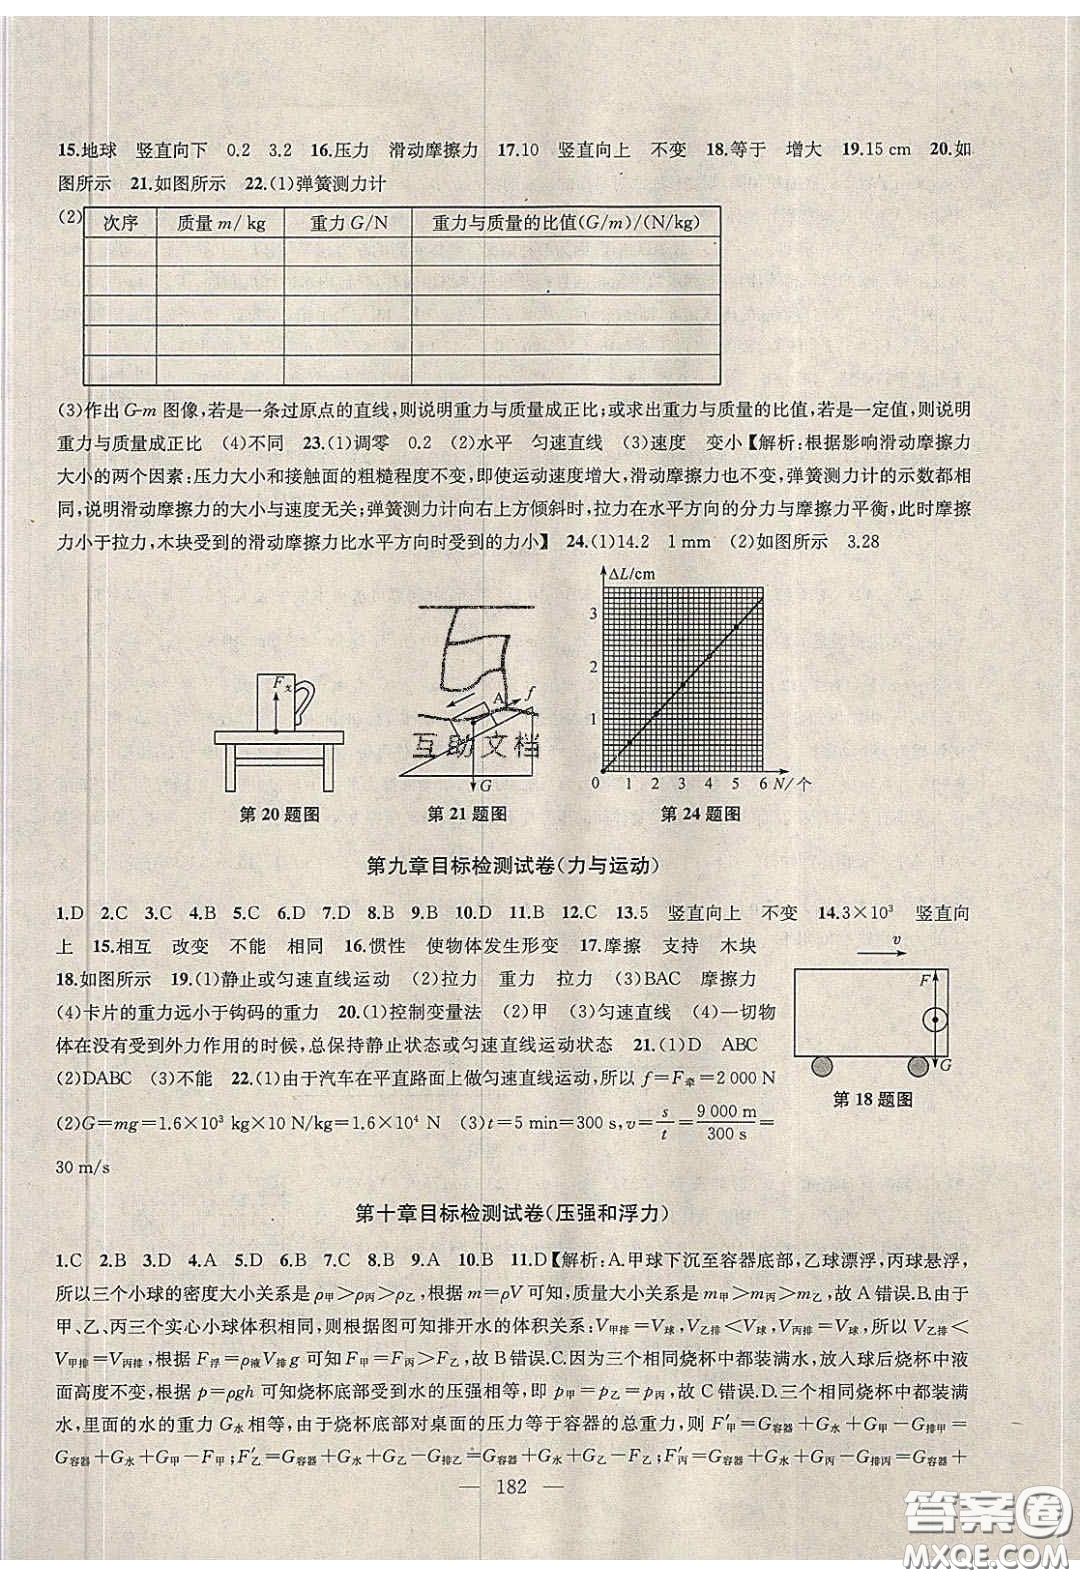 15.地球　竖直向下　0.2　3.2　16.压力　滑动摩擦力　17.10　竖直向上　不变　18.等于　增大　19.15 cm　20.如
图所示　21.如图所示　22.(1)弹簧测力计
(2)
次序　质量 m/ kg　重力 G/N　重力与质量的比值(G/m)/(N/kg)
(3)作出 G-m 图像,若是一条过原点的直线,则说明重力与质量成正比;或求出重力与质量的比值,若是一定值,则说明
重力与质量成正比　(4)不同　23.(1)调零　0.2　(2)水平　匀速直线　(3)速度　变小【解析:根据影响滑动摩擦力
大小的两个因素:压力大小和接触面的粗糙程度不变,即使运动速度增大,滑动摩擦力也不变,弹簧测力计的示数都相
同,说明滑动摩擦力的大小与速度无关;弹簧测力计向右上方倾斜时,拉力在水平方向的分力与摩擦力平衡,此时摩擦
力小于拉力,木块受到的滑动摩擦力比水平方向时受到的力小】　24.(1)14.2　1 mm　(2)如图所示　3.28
F支
A
f
G
互助文档
ΔL/cm
3
2
1
0 1 2 3 4 5 6 N/个
第20题图　第21题图　第24题图
第九章目标检测试卷(力与运动)
1.D　2.C　3.C　4.B　5.C　6.D　7.D　8.B　9.B　10.D　11.B　12.C　13.5　竖直向上　不变　14.3×10³　竖直向
上　15.相互　改变　不能　相同　16.惯性　使物体发生形变　17.摩擦　支持　木块
18.如图所示　19.(1)静止或匀速直线运动　(2)拉力　重力　拉力　(3)BAC　摩擦力
(4)卡片的重力远小于钩码的重力　20.(1)控制变量法　(2)甲　(3)匀速直线　(4)一切物
体在没有受到外力作用的时候,总保持静止状态或匀速直线运动状态　21.(1)D　ABC
(2)DABC　(3)不能　22.(1)由于汽车在平直路面上做匀速直线运动,所以 f=F牵=2 000 N
(2)G=mg=1.6×10³ kg×10 N/kg=1.6×10⁴ N　(3)t=5 min=300 s,v=s/t=9 000 m/300 s=
30 m/s
v
F
G
第18题图
第十章目标检测试卷(压强和浮力)
1.C　2.B　3.D　4.A　5.D　6.B　7.C　8.B　9.A　10.B　11.D【解析:A.甲球下沉至容器底部,乙球漂浮,丙球悬浮,
所以三个小球的密度大小关系是 ρ甲>ρ丙>ρ乙,根据 m=ρV 可知,质量大小关系是 m甲>m丙>m乙,故 A 错误.B.由于
甲、乙、丙三个实心小球体积相同,则根据图可知排开水的体积关系:V甲排=V球,V乙排<V球,V丙排=V球,所以 V乙排<
V甲排=V丙排,根据 F浮=ρ液V排g 可知 F甲=F丙>F乙,故 B 错误.C.因为三个相同烧杯中都装满水,放入球后烧杯中液
面高度不变,根据 p=ρgh 可知烧杯底部受到水的压强相等,即 p甲=p乙=p丙,故 C 错误.D.三个相同烧杯中都装满
水,里面的水的重力 G水相等,由于烧杯底部对桌面的压力等于容器的总重力,则 F′甲=G容器+G水+G甲-G排甲=
G容器+G水+G甲-F甲;F′乙=G容器+G水+G乙-G排乙=G容器+G水+G乙-F乙;F′丙=G容器+G水+G丙-G排丙=G容器+
— 182 —
答案圈
MXQE.COM